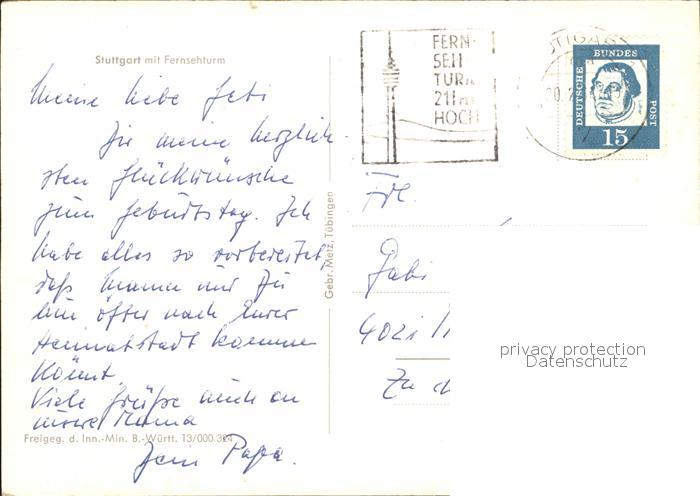 Stuttgart mit Fernsehturm
Meine liebe Gabi
Dir meine herzlich
sten Glückwünsche
zum Geburtstag. Ich
habe alles so vorbereitet,
daß Mama und Du
nun öfter nach Eurer
Heimatstadt kommen
könnt.
Viele Grüße auch an
unsere Mama
Dein Papa.
Freigeg. d. Inn.-Min. B.-Württ. 13/000.324
Gebr. Metz, Tübingen
FERN-
SEH
TURM
211m
HOCH
DEUTSCHE
BUNDES
POST
15
Frl.
Gabi
privacy protection
Datenschutz